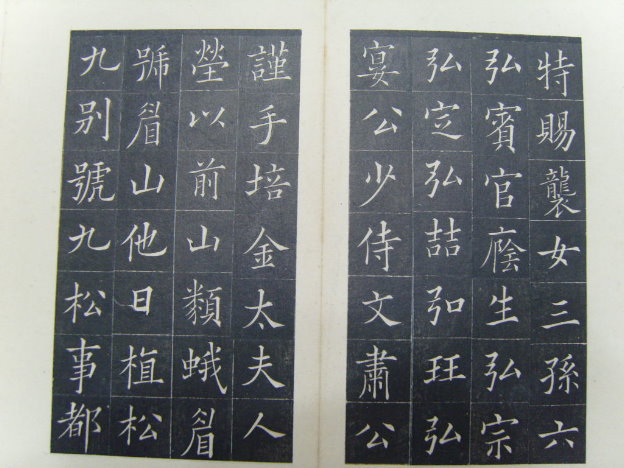 特賜襲女三孫六
弘賓官廕生弘宗
弘定弘喆弘玨弘
宴公少侍文肅公
謹手培金太夫人
塋以前山類蛾眉
號眉山他日植松
九别號九松事都